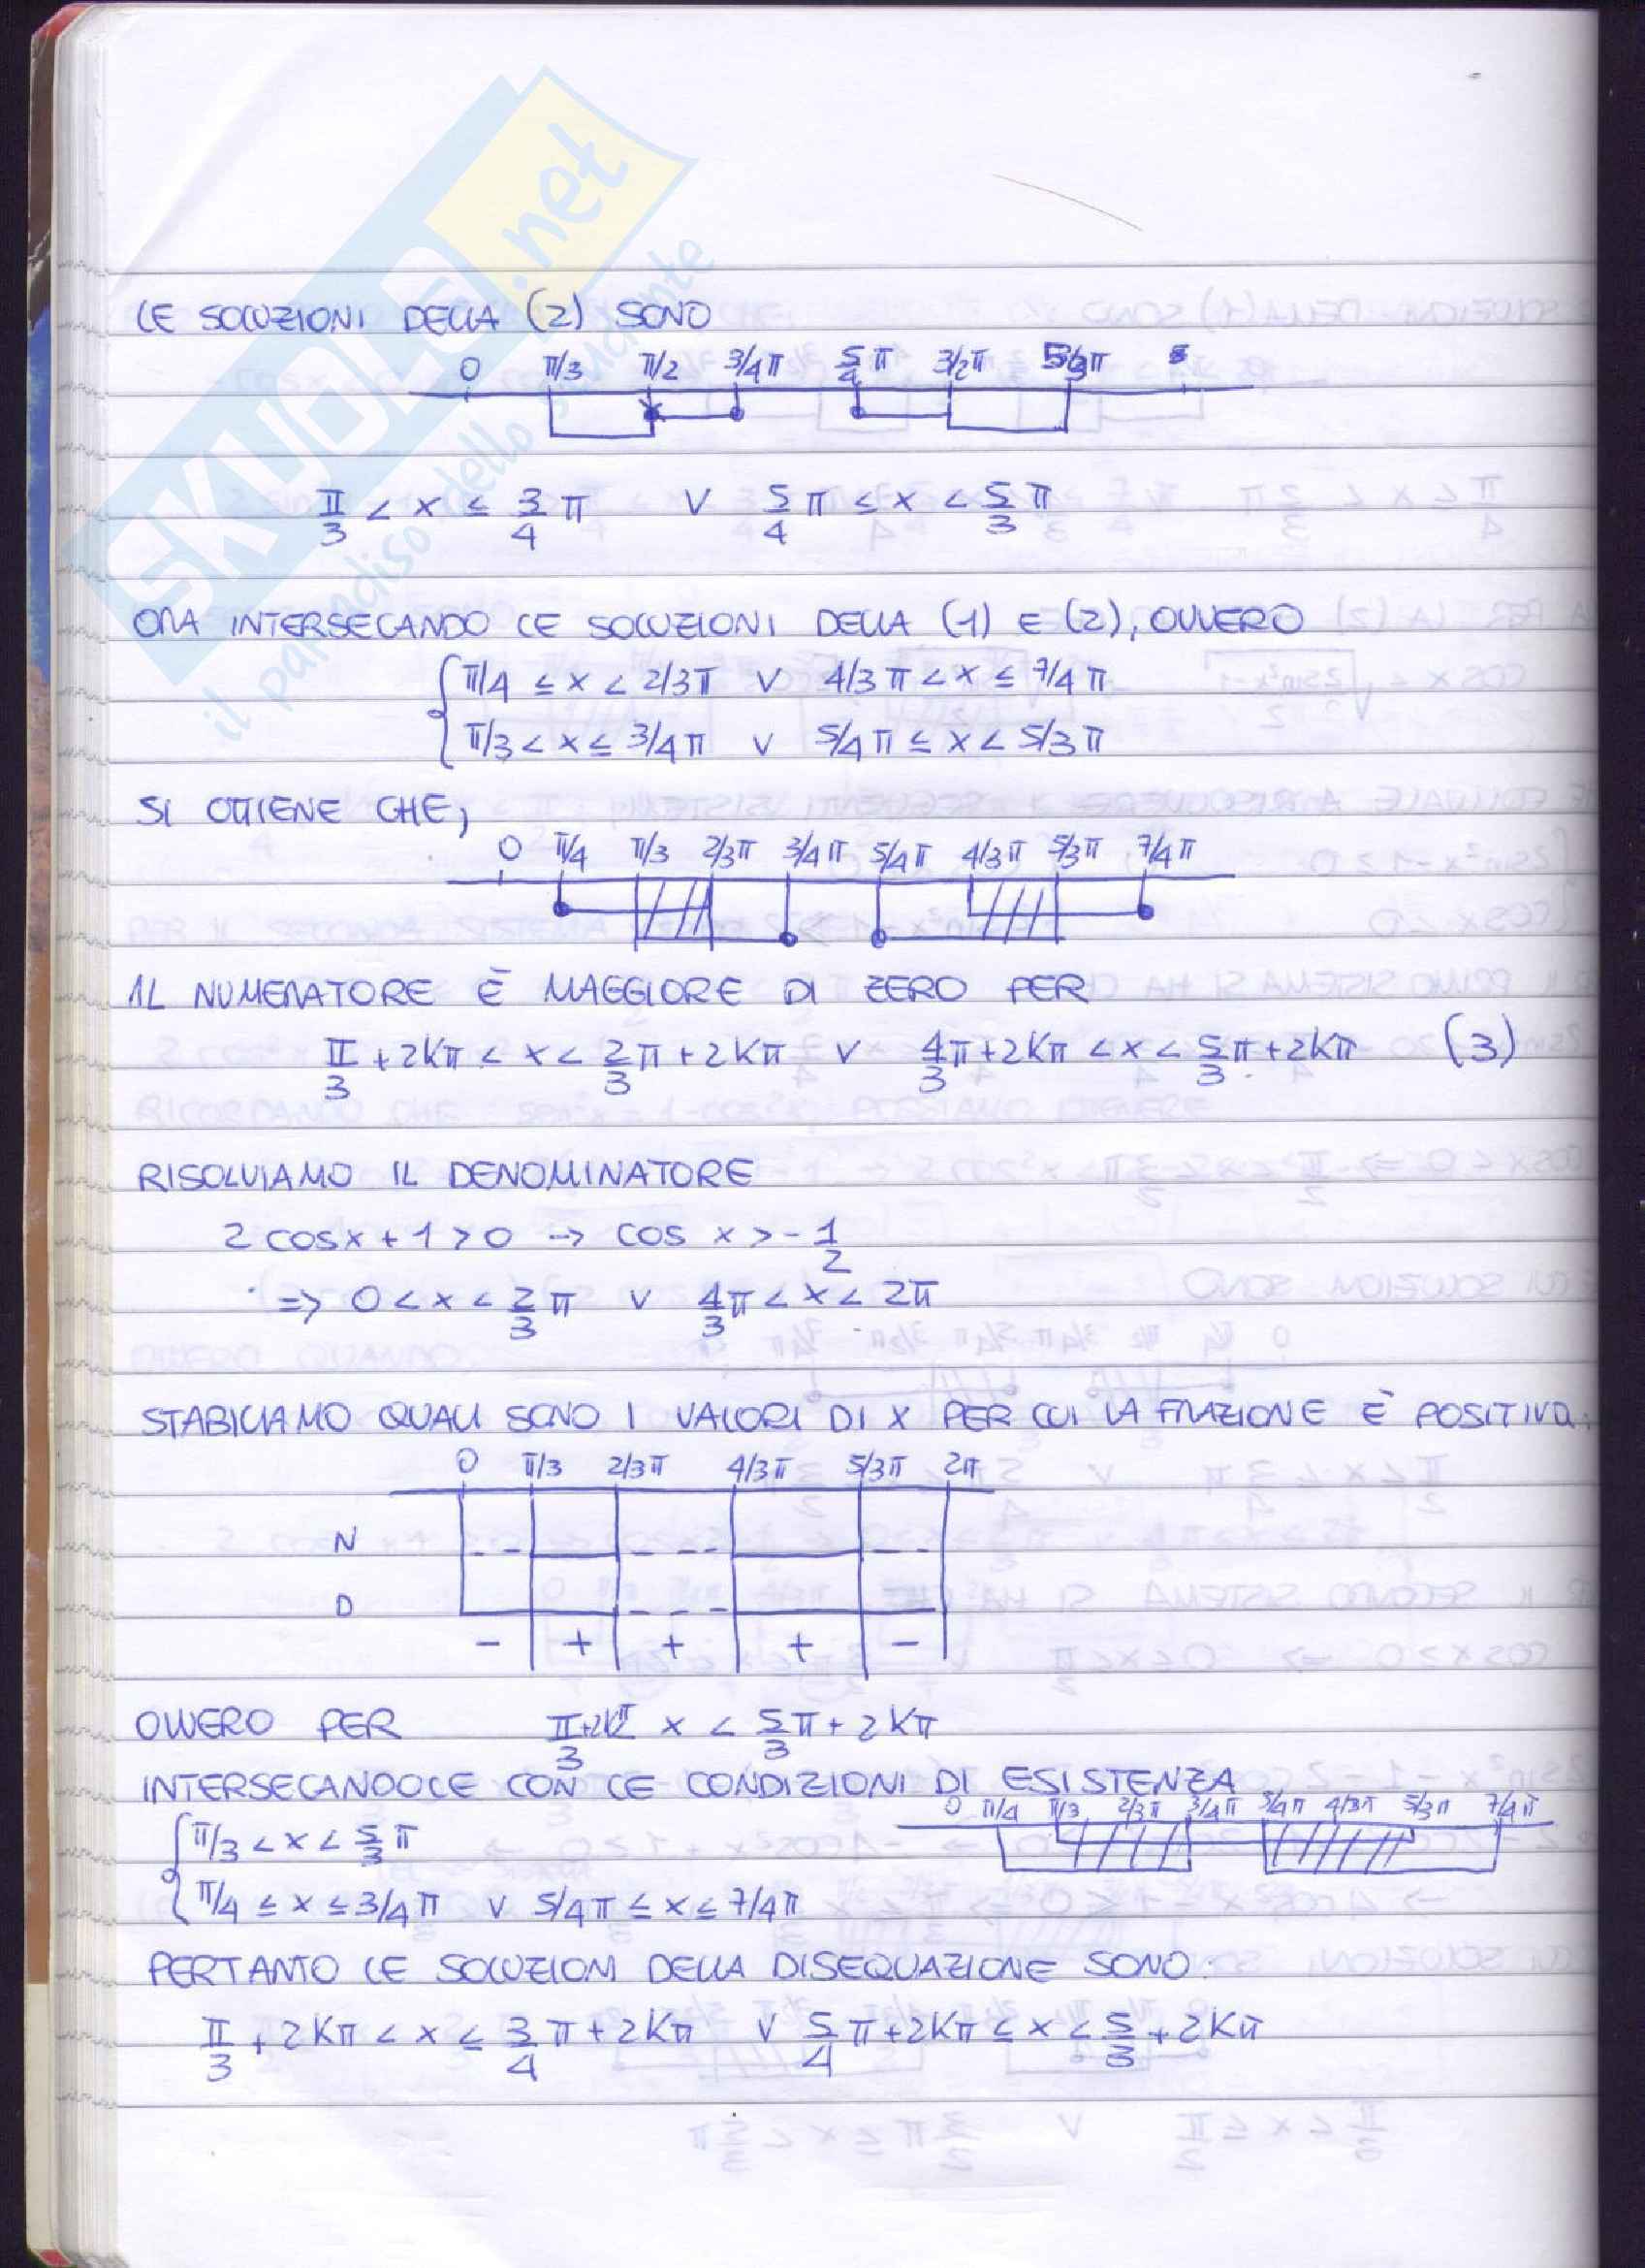 SKUOLA.net
il paradiso dello studente
LE SOLUZIONI DELLA (2) SONO
0 π/3 π/2 3/4π 5/4 π 3/2π 5/3π
π/3 < x ≤ 3/4 π V 5/4 π ≤ x < 5/3 π
ORA INTERSECANDO LE SOLUZIONI DELLA (1) E (2), OVVERO
{ π/4 ≤ x < 2/3π V 4/3 π < x ≤ 7/4 π
π/3 < x ≤ 3/4 π V 5/4 π ≤ x < 5/3 π
SI OTTIENE CHE,
0 π/4 π/3 2/3π 3/4π 5/4π 4/3π 5/3π 7/4π
IL NUMERATORE È MAGGIORE DI ZERO PER
π/3 + 2Kπ < x < 2/3 π + 2Kπ V 4/3 π + 2Kπ < x < 5/3 π + 2Kπ (3)
RISOLVIAMO IL DENOMINATORE
2 cosx + 1 > 0 → cos x > - 1/2
⇒ 0 < x < 2/3 π V 4/3 π < x < 2π
STABILIAMO QUALI SONO I VALORI DI X PER CUI LA FRAZIONE È POSITIVA.
0 π/3 2/3π 4/3π 5/3π 2π
N
D
- + + + -
OVVERO PER π/3 +2Kπ x < 5/3 π + 2Kπ
INTERSECANDOLE CON LE CONDIZIONI DI ESISTENZA
0 π/4 π/3 2/3π 3/4π 5/4π 4/3π 5/3π 7/4π
{ π/3 < x < 5/3 π
π/4 ≤ x ≤ 3/4 π V 5/4 π ≤ x ≤ 7/4 π
PERTANTO LE SOLUZIONI DELLA DISEQUAZIONE SONO:
π/3 + 2Kπ < x ≤ 3/4 π + 2Kπ V 5/4 π + 2Kπ ≤ x < 5/3 + 2Kπ